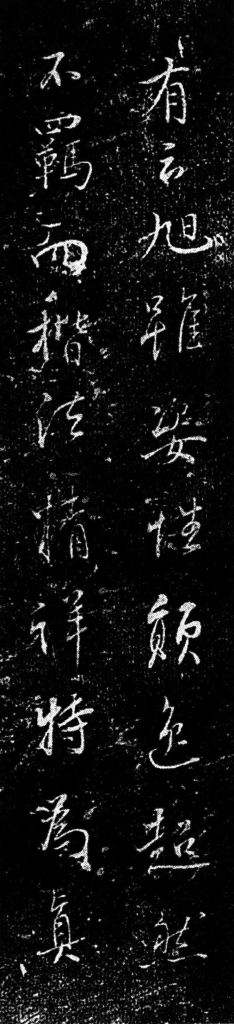 有云旭雖姿性顛逸超然
不羈而楷法精詳特為真